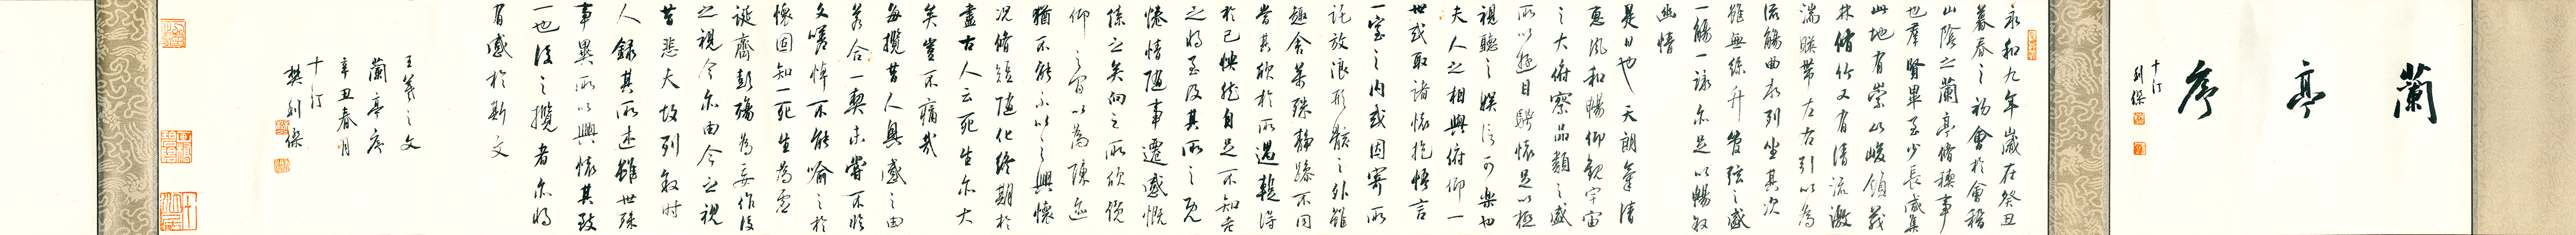 蘭亭序
十汀
利保
永和九年歲在癸丑
暮春之初會於會稽
山陰之蘭亭脩禊事
也羣賢畢至少長咸集
此地有崇山峻領茂
林脩竹又有清流激
湍暎帶左右引以為
流觴曲水列坐其次
雖無絲竹管弦之盛
一觴一詠亦足以暢叙
幽情
是日也天朗氣清
惠風和暢仰觀宇宙
之大俯察品類之盛
所以遊目騁懷足以極
視聽之娛信可樂也
夫人之相與俯仰一
世或取諸懷抱悟言
一室之內或因寄所
託放浪形骸之外雖
趣舍萬殊靜躁不同
當其欣於所遇蹔得
於己怏然自足不知老
之將至及其所之既
惓情隨事遷感慨
係之矣向之所欣俛
仰之間以為陳迹
猶不能不以之興懷
况脩短隨化終期於
盡古人云死生亦大
矣豈不痛哉
每攬昔人興感之由
若合一契未嘗不臨
文嗟悼不能喻之於
懷固知一死生為虛
誕齊彭殤為妄作後
之視今亦由今之視
昔悲夫故列叙時
人錄其所述雖世殊
事異所以興懷其致
一也後之攬者亦將
有感於斯文
王羲之文
蘭亭序
辛丑春月
十汀
樊利保